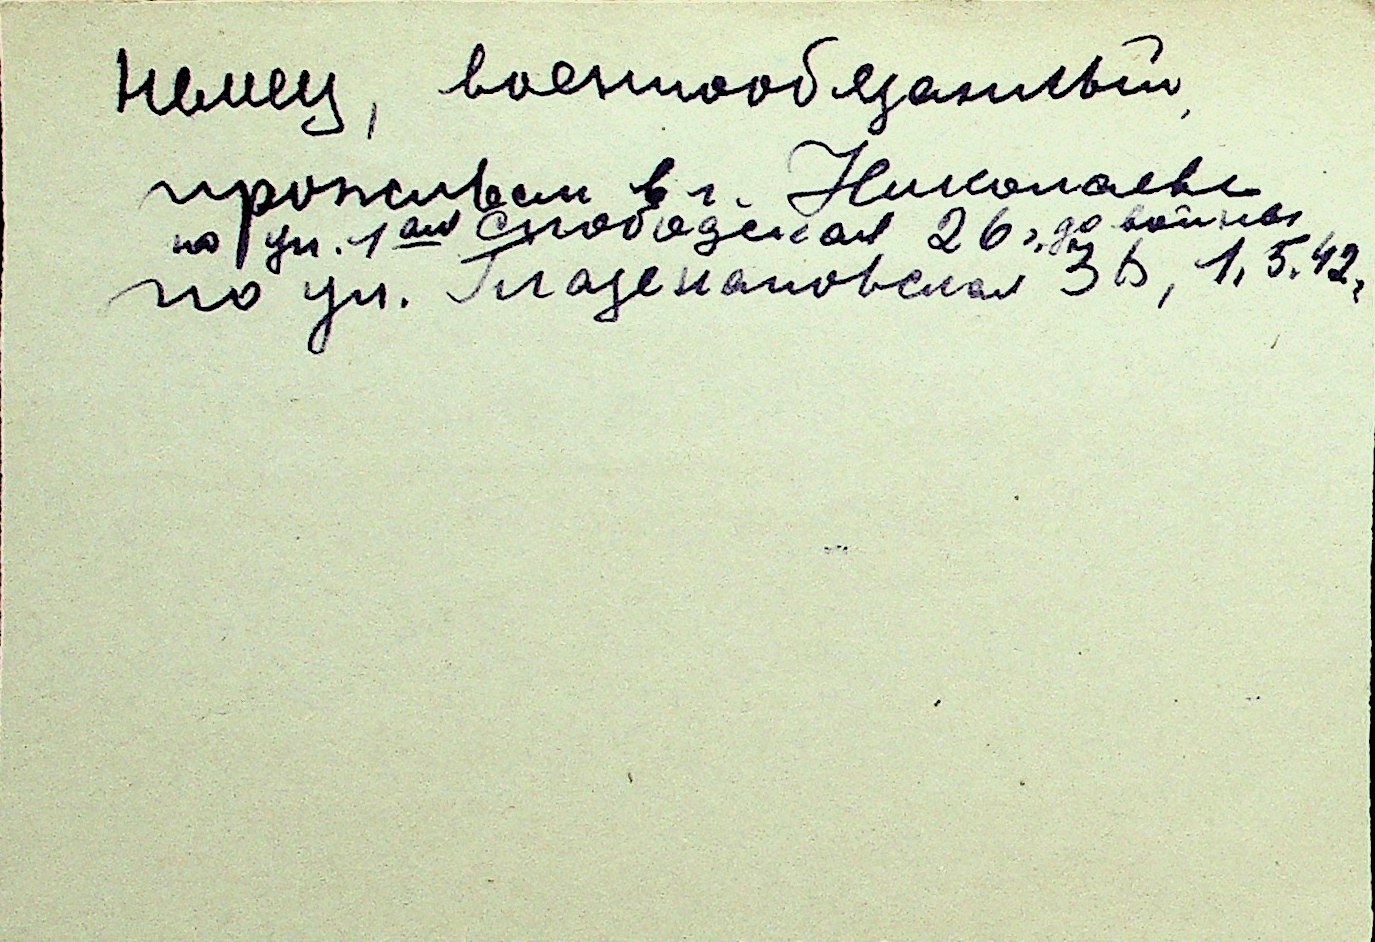 Немец, военнообязанный,
проживал в г. Николаеве
по ул. 1ая Слободская 26, до войны
по ул. Плаценаповская 3Б, 1.5.42,